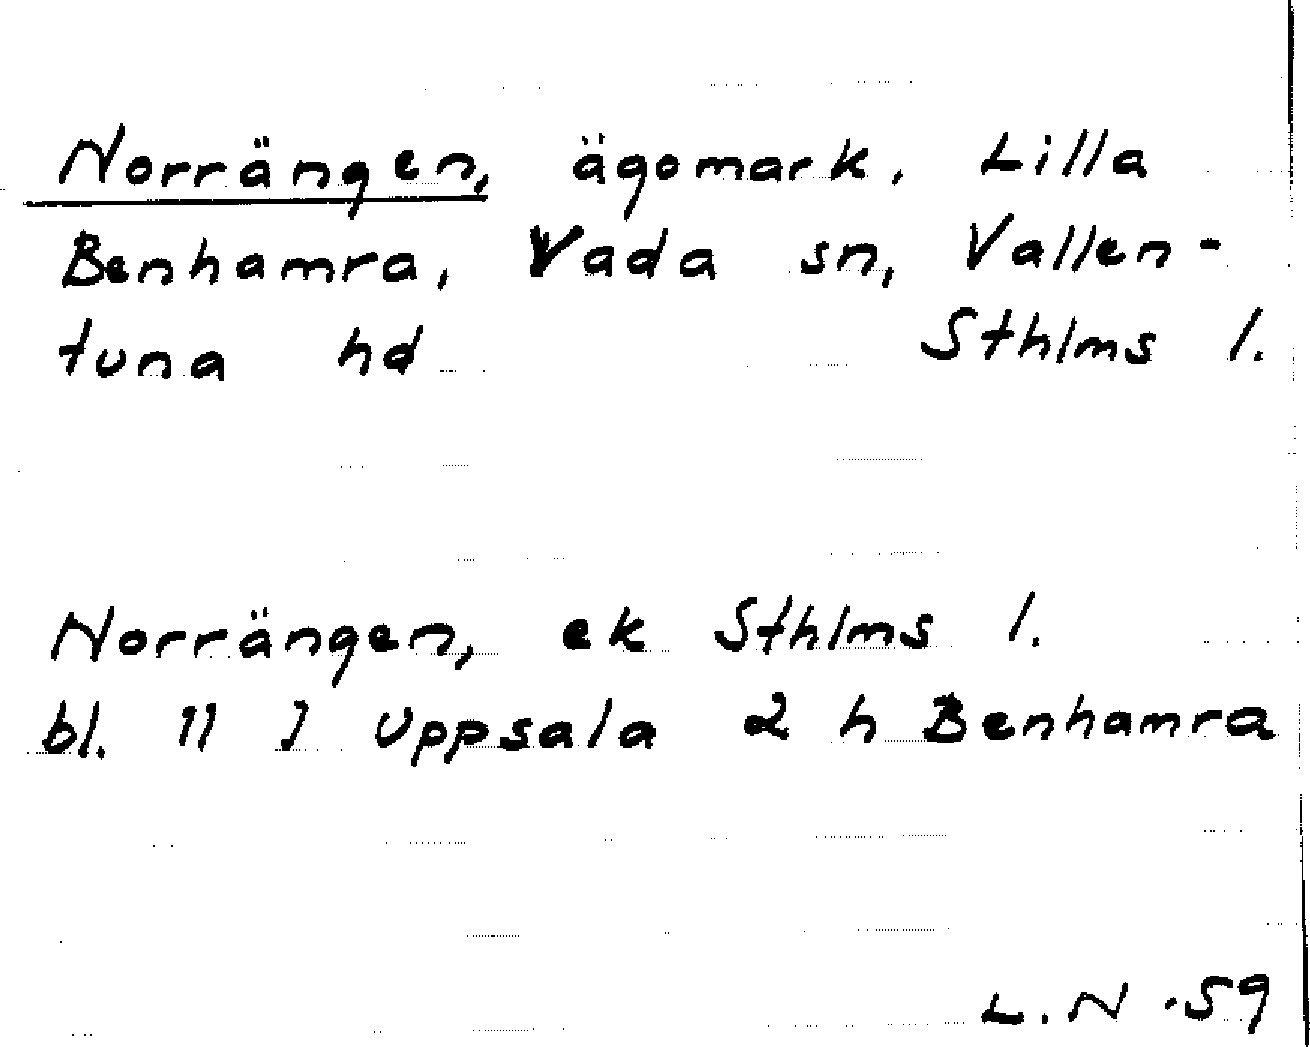 Norrängen, ägomark, Lilla
Benhamra, Vada sn, Vallen-
tuna hd Sthlms l.
Norrängen, ek Sthlms l.
bl. 11 J Uppsala 2 h Benhamra
L.N -59